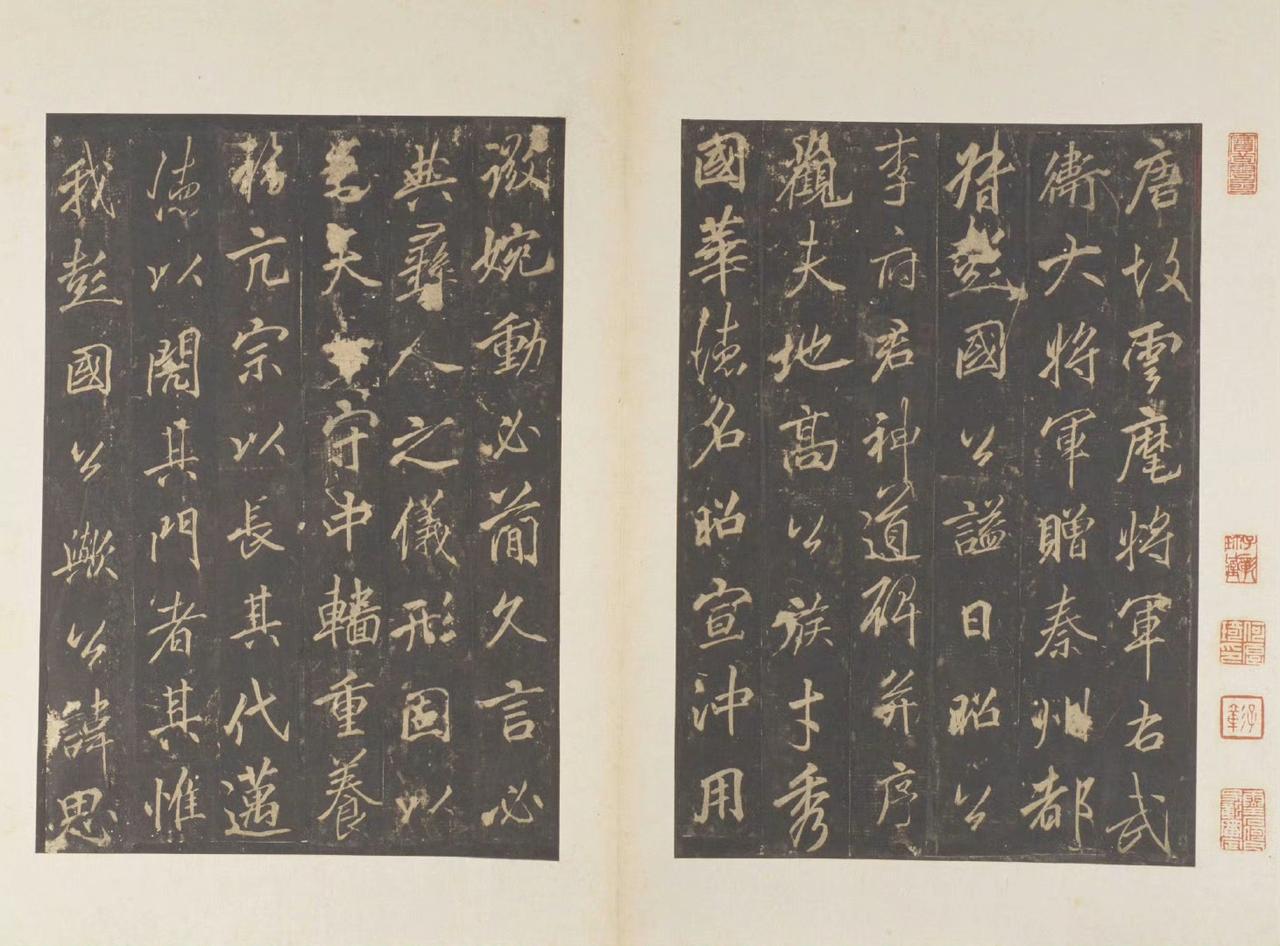 唐故雲麾將軍右武
衛大將軍贈秦州都
督彭國公謚曰昭公
李府君神道碑并序
觀夫地高公族才秀
國華德名昭宣沖用
微婉動必簡久言必
典彝人之儀形固以
為天守中轖重養
移亢宗以長其代邁
德以閱其門者其惟
我彭國公歟公諱思